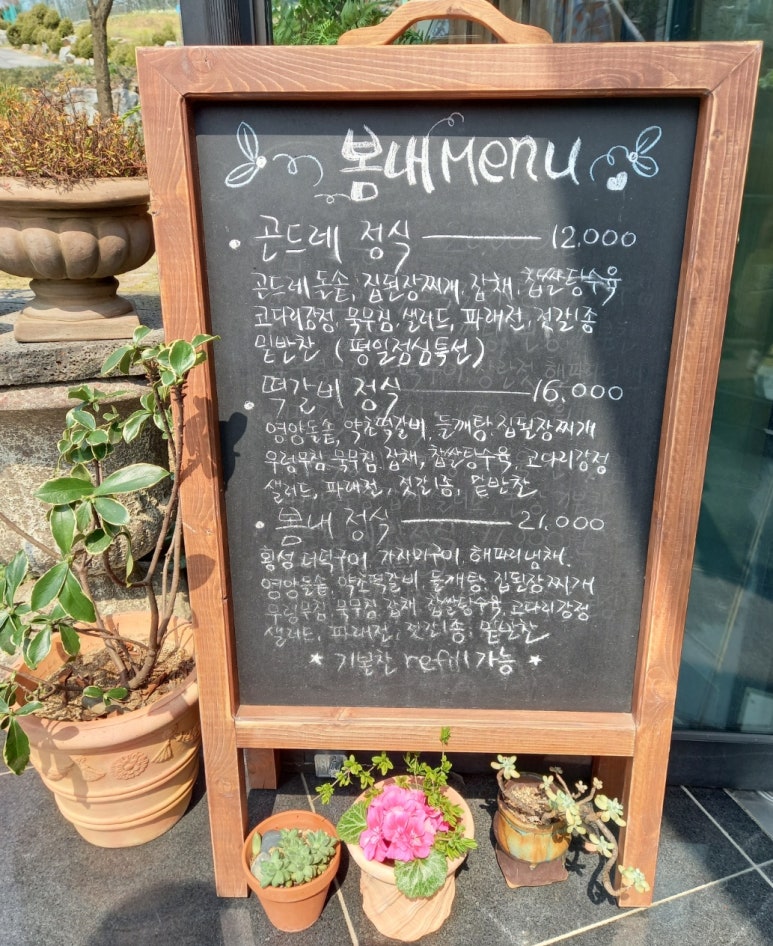 봄내 Menu
• 곤드레 정식 ———— 12,000
곤드레 돌솥, 집된장찌개, 잡채, 찹쌀탕수육
코다리강정, 묵무침, 샐러드, 파래전, 젓갈1종
밑반찬 (평일점심특선)
• 떡갈비 정식 ———— 16,000
영양돌솥, 약초떡갈비, 들깨탕, 집된장찌개
우렁무침, 묵무침, 잡채, 찹쌀탕수육, 코다리강정
샐러드, 파래전, 젓갈1종, 밑반찬
• 봄내 정식 ———— 21,000
횡성더덕구이, 가자미구이, 해파리냉채.
영양돌솥, 약초떡갈비, 들깨탕, 집된장찌개
우렁무침, 묵무침, 잡채, 찹쌀탕수육, 코다리강정
샐러드, 파래전, 젓갈1종, 밑반찬
★ 기본찬 refill 가능 ★